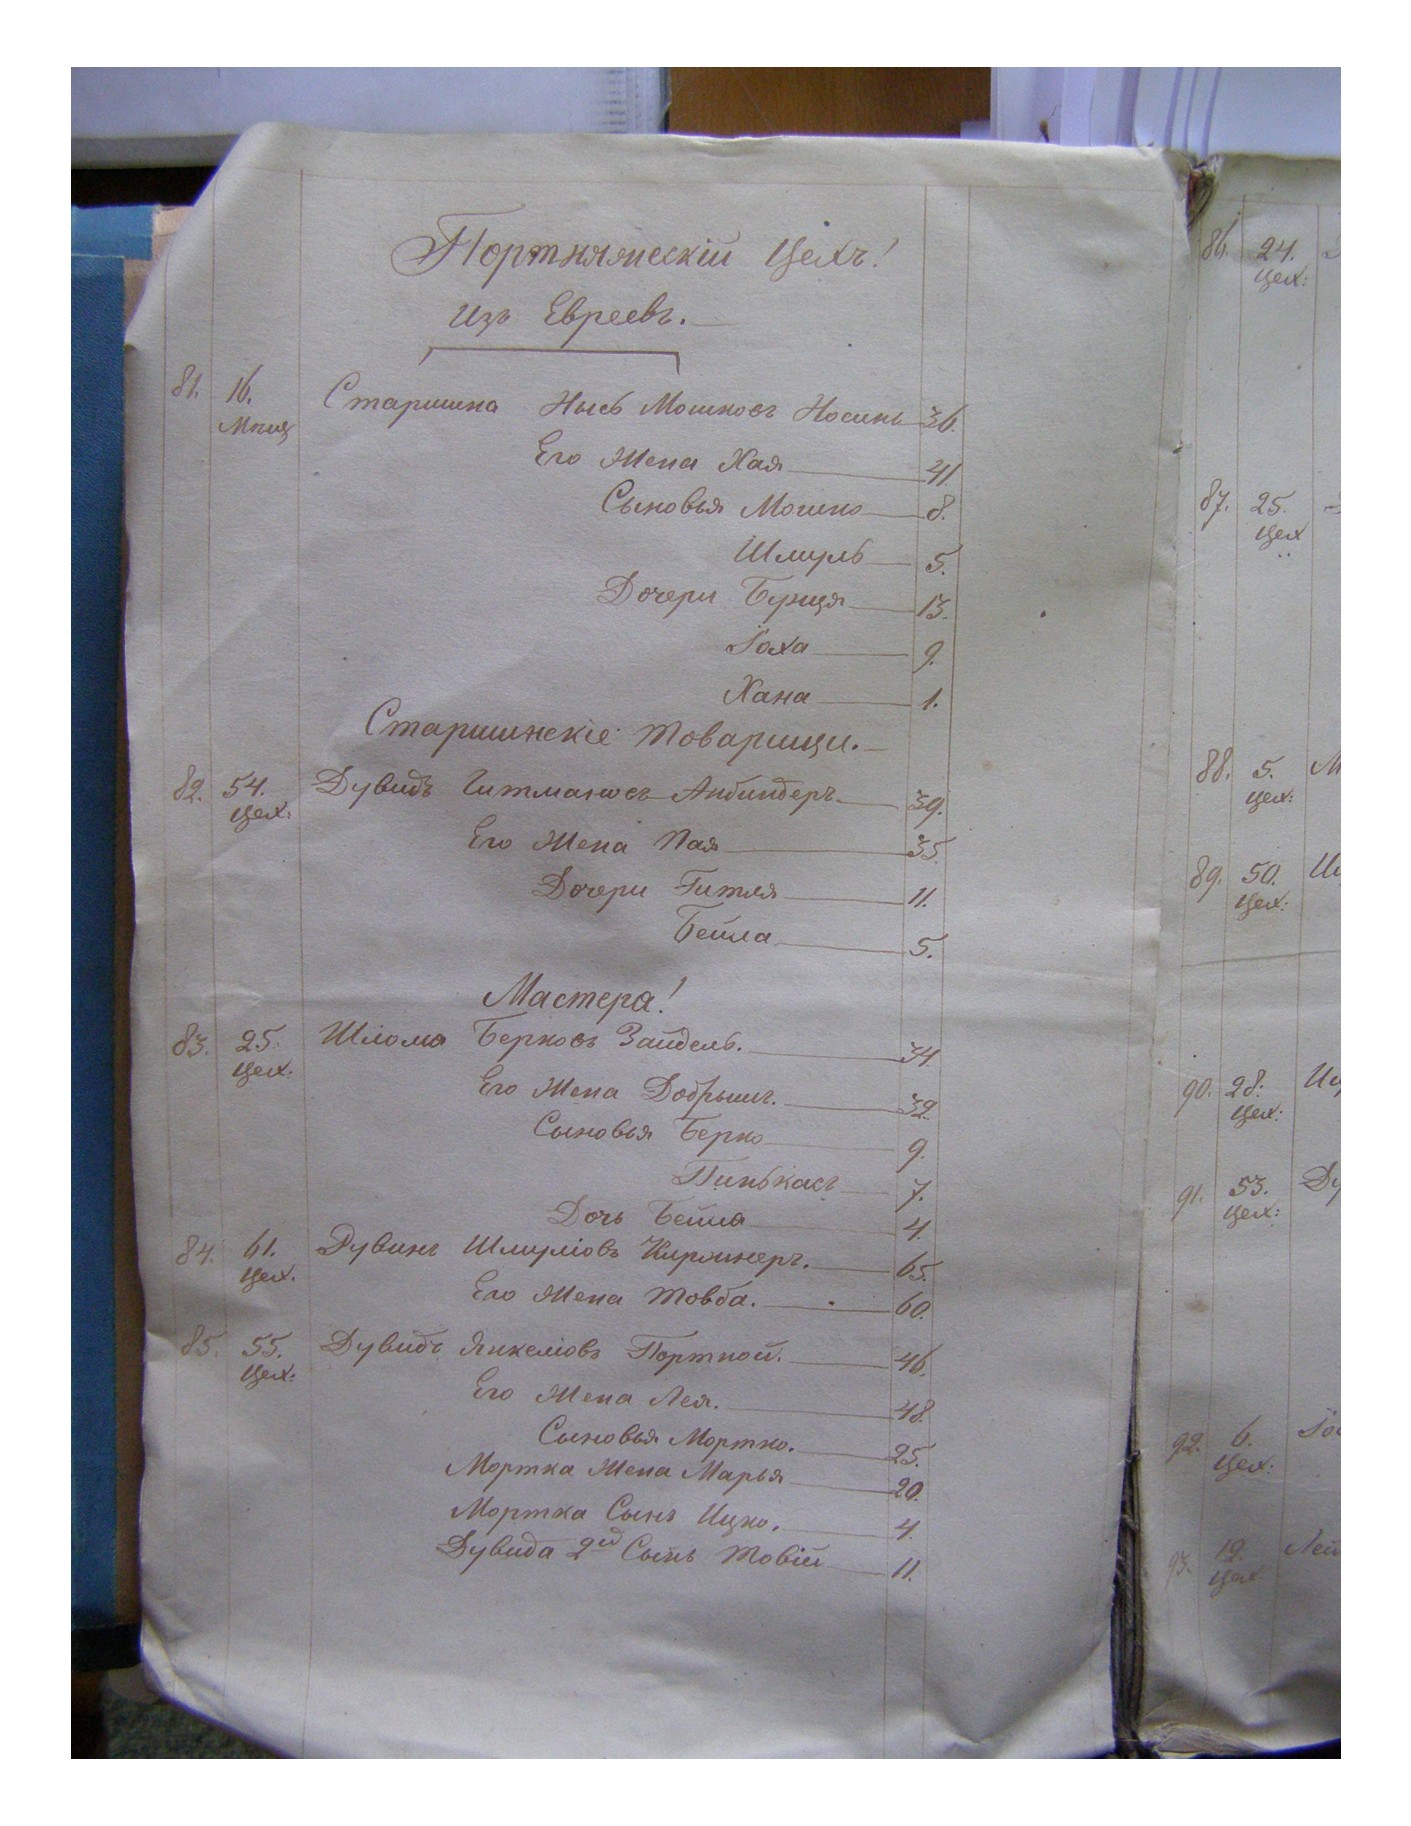 Портняжескій Цехъ!
изъ Евреевъ.
81. 16. Старшина Нысь Мошковъ Носинъ 36.
Его Жена Хая 41
Сыновья Мошко 8.
Шмуль 5.
Дочери Бунця 13.
Іоха 9.
Хана 1.
Старшинскіе товарищи.
82. 54. Дувидъ Гитмановъ Анбиндеръ 39.
цех:
Его Жена Пая 35.
Дочери Гитля 11.
Бейла 5.
Мастера!
83. 25. Шлома Берковъ Зайдель. 34.
цех:
Его Жена Добрышъ. 32.
Сыновья Берко 9.
Пинькасъ 7.
Дочь Бейла 4.
84. 61. Рувинъ Шмуліовъ 65.
цех.
Его Жена Товба. 60.
85. 55. Дувидъ Янкеліовъ Портной. 46.
цех:
Его Жена Лея. 48.
Сыновья Мортко. 25.
Мортка Жена Марья 20.
Мортка Сынъ Ицко. 4.
Дувида 2й Сынъ Товій 11.
86. 24.
цех:
87. 25.
цех
88. 5.
цех:
89. 50.
цех:
90. 28.
цех:
91. 53.
цех:
92. 6.
цех:
93. 19.
цех